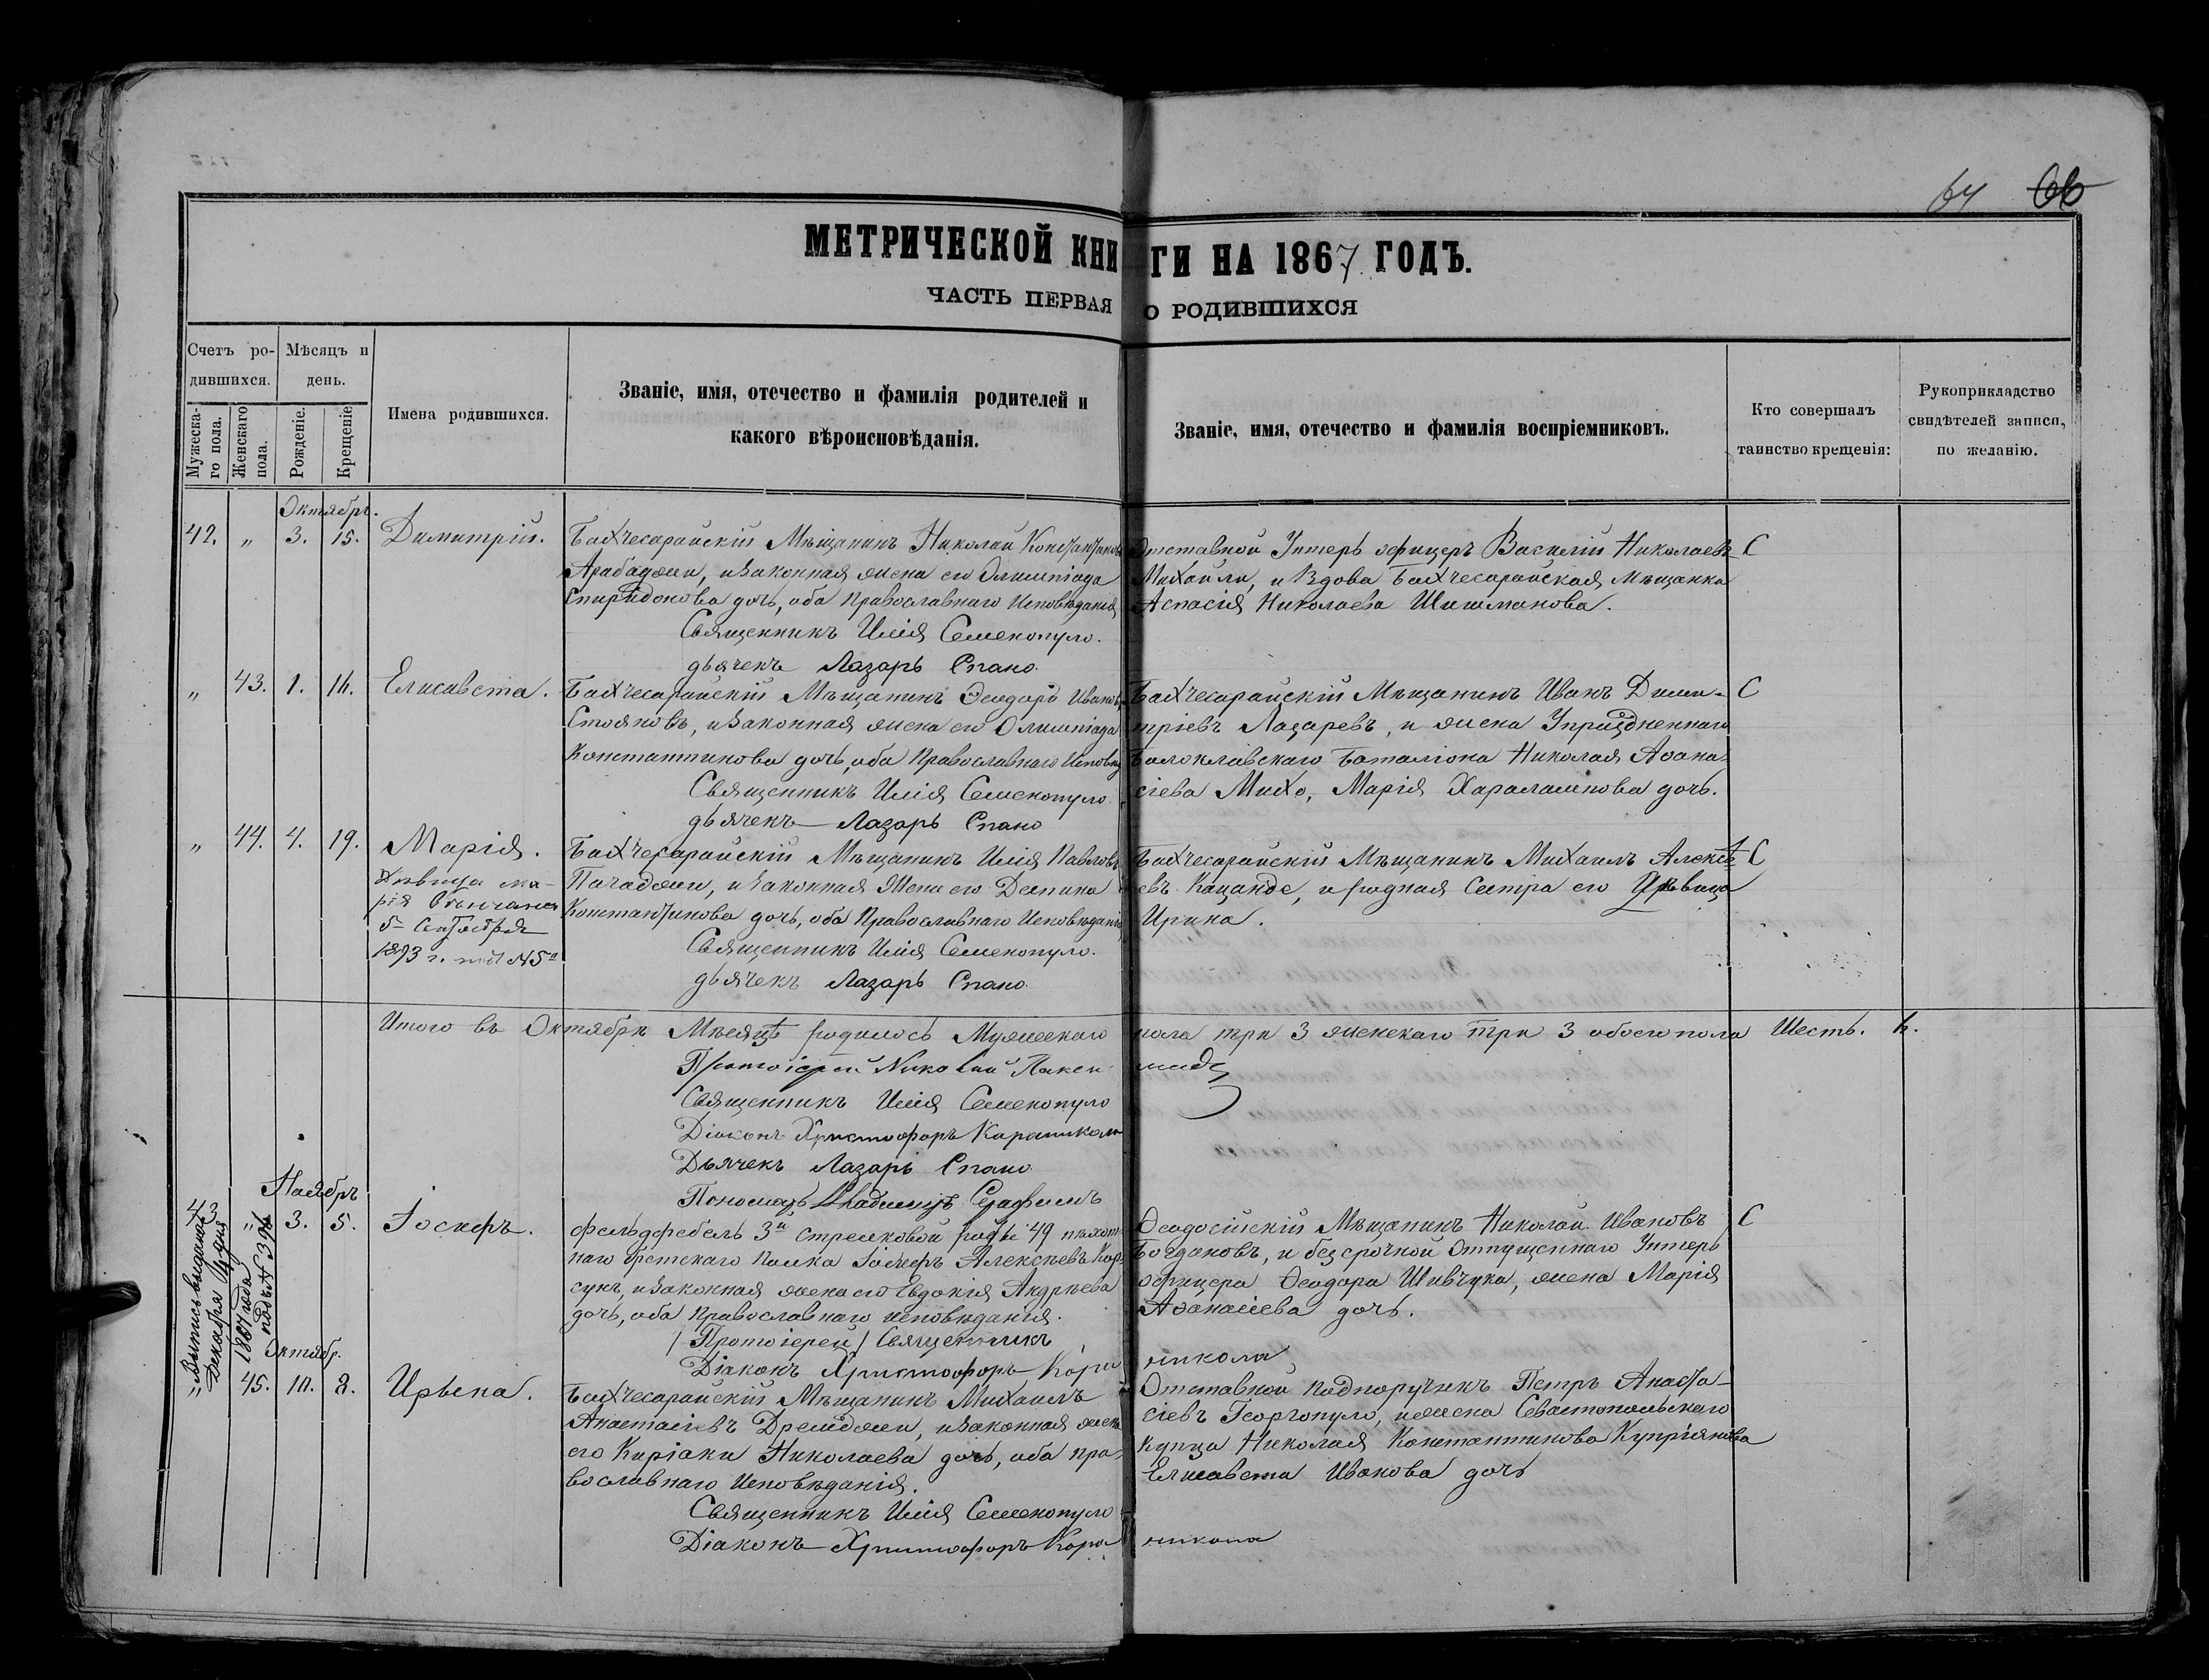 64 66
МЕТРИЧЕСКОЙ КНИГИ НА 1867 ГОДЪ.
ЧАСТЬ ПЕРВАЯ О РОДИВШИХСЯ
Счетъ родившихся.
Мѣсяцъ и день.
Мужескаго пола.
Женскаго пола.
Рожденіе.
Крещеніе
Имена родившихся.
Званіе, имя, отечество и фамилія родителей и
какого вѣроисповѣданія.
Званіе, имя, отечество и фамилія воспріемниковъ.
Кто совершалъ
таинство крещенія:
Рукоприкладство
свидѣтелей записи,
по желанію.
Октябрь.
42. „ 3. 15. Димитрій.
Бахчесарайскій Мѣщанинъ Николай Константиновъ
Арабаджи, и Законная жена его Олимпіада
Спиридонова дочь, оба Православнаго Исповѣданія
Священникъ Илія Семенопуло.
дьячекъ Лазарь Спано
Отставной Унтеръ офицеръ Василій Николаевъ С
Михайли, и Вдова Бахчесарайская мѣщанка
Аспасія Николаева Шишманова.
„ 43. 1. 16. Елисавета.
Бахчесарайскій Мѣщанинъ Ѳеодоръ Ивановъ
Стояновъ, и Законная жена его Олимпіада
Константинова дочь, оба Православнаго Исповѣд
Священникъ Илія Семенопуло
дьячекъ Лазарь Спано
Бахчесарайскій Мѣщанинъ Иванъ Дими- С
тріевъ Лазаревъ, и жена Упраздненнаго
Балоклавскаго Баталіона Николая Аѳана
сіева Михо, Марія Харалампова дочь.
„ 44. 4. 19. Марія.
дѣвица Ма-
рія вѣнчана
5 Сентября
1893 г. под N5
Бахчесарайскій Мѣщанинъ Илія Павловъ
Пачаджи, и Законная Жена его Деспина
Константинова дочь, оба Православнаго Исповѣданія
Священникъ Илія Семенопуло.
дьячекъ Лазарь Спано
Бахчесарайскій Мѣщанинъ Михаилъ Алексѣ С
евъ Кацанде, и родная Сестра его Дѣвица
Ирина.
Итого въ Октябрѣ Мѣсяцѣ родилось Мужескаго пола три 3 женскаго три 3 обоего пола Шесть. 6.
Протоіерей Николай
Священникъ Илія Семенопуло
Діаконъ Христофоръ Караникола
Дьячекъ Лазарь Спано
Пономарь Владимиръ Серафимъ
Ноябрь
43 „ 3. 5. Іосифъ.
Выпись выдана
Декабря 4 дня
1887 года
подъ N 396
фельдфебель 3й стрелковой роты 49 пѣхот
наго Бретскаго полка Іосифъ Алексѣевъ Кор
сунъ, и Законная жена его Евдокія Андрѣева
дочь, оба Православнаго исповѣданія.
/Протоіерей/ Священникъ
Діаконъ Христофоръ Караникола
Ѳеодосійскій Мѣщанинъ Николай Ивановъ С
Богдановъ, и безсрочной Отпущеннаго Унтеръ
офицера Ѳеодора Шивчука, жена Марія
Аѳанасіева дочь.
Октябр.
„ 45. 10. 8. Ирьена.
Бахчесарайскій Мѣщанинъ Михаилъ
Анастасіевъ Дремджи, и Законная жена
его Киріаки Николаева дочь, оба пра-
вославнаго Исповѣданія.
Священникъ Илія Семенопуло
Діаконъ Христофоръ Караникола
Отставной подпоручикъ Петръ Анаста-
сіевъ Георгопуло, и жена Севастопольскаго
Купца Николая Константинова Купріянова
Елисавета Иванова дочь